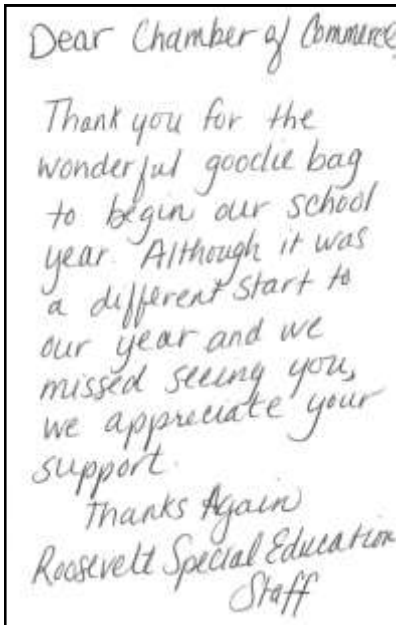 Dear Chamber of Commerce,
Thank you for the
wonderful goodie bag
to begin our school
year. Although it was
a different start to
our year and we
missed seeing you,
we appreciate your
support.
Thanks Again
Roosevelt Special Education
Staff